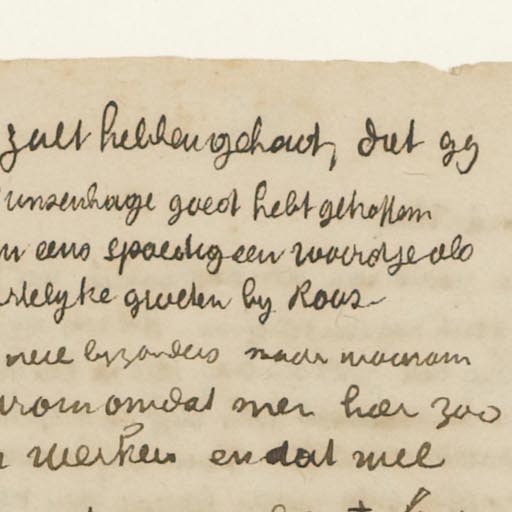 zult hebben gehad, dat gy
unsenhage goed hebt getroffen
eens spoedig een woordje als
rtelyke groeten by Roos
neel byzonders maar waarom
arom omdat men hier zoo
werken en dat wel